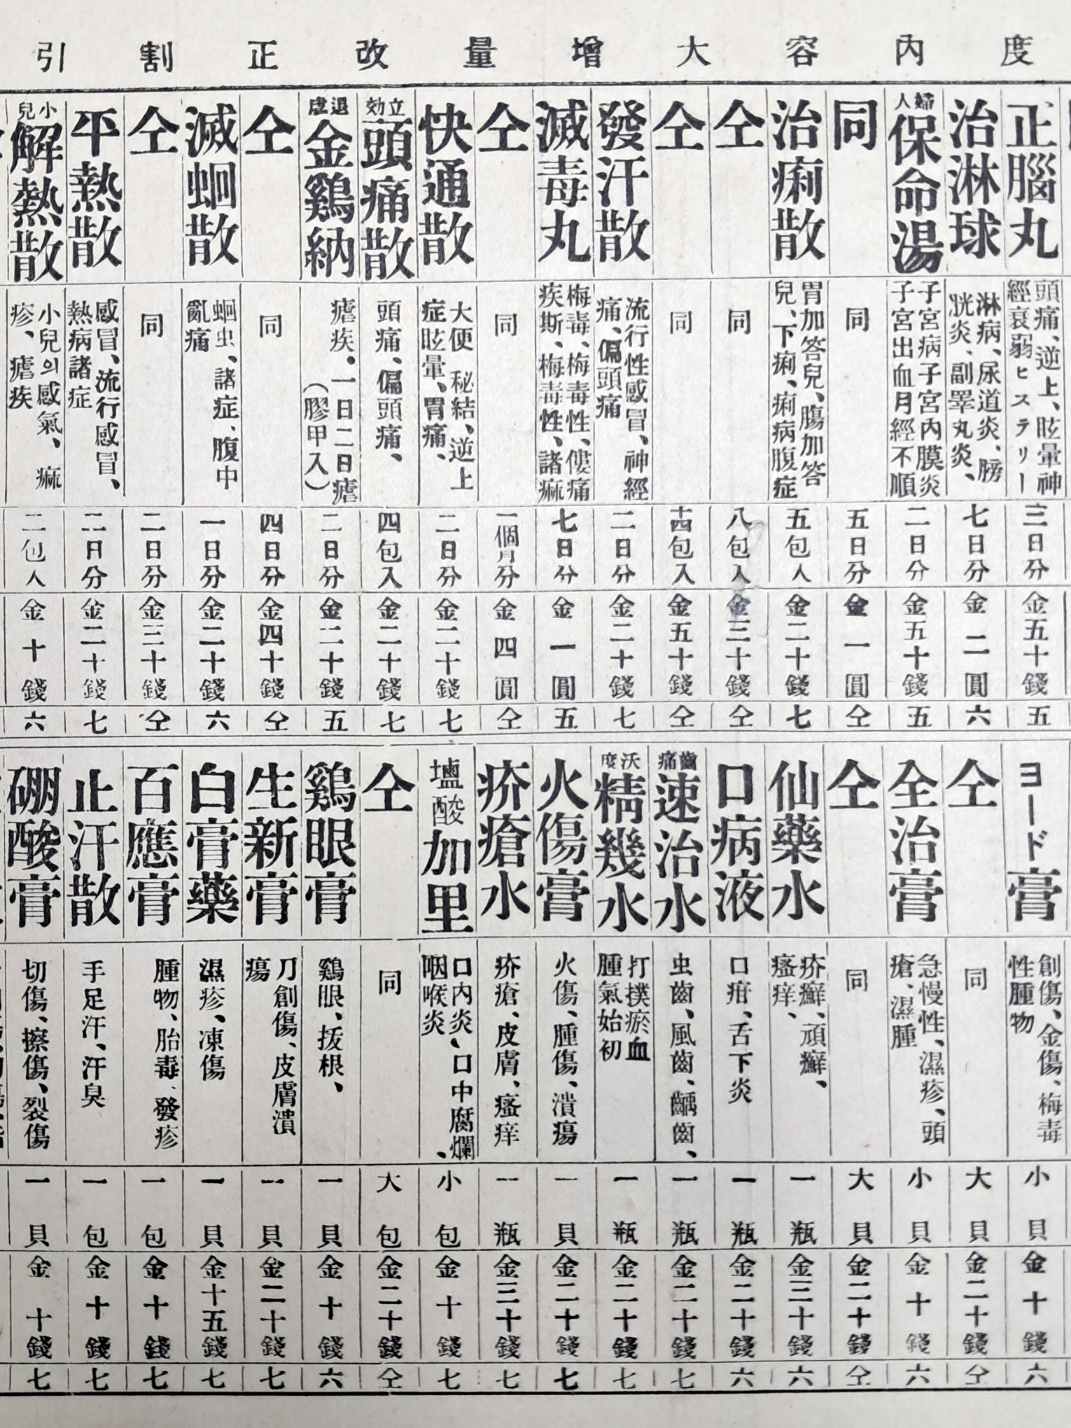 度內容大增量改正割引
正腦丸 頭痛、逆上、眩暈神經衰弱ヒステリー 三日分 金五十錢 五
治淋球 淋病、尿道炎、膀胱炎、副睪丸炎、 七日分 金二圓 六
婦人保命湯 子宮病子宮內膜炎子宮出血月經不順 二日分 金五十錢 五
同 同 五日分 金一圓 仝
治痢散 胃加答兒、膓加答兒、下痢、痢病腹症 五包入 金二十錢 七
仝 同 八包入 金三十錢 仝
仝 同 十四包入 金五十錢 仝
發汗散 流行性感冒、神經痛、偏頭痛 二日分 金二十錢 七
滅毒丸 梅毒、梅毒性、僂痛疾斯、梅毒性、諸痲 七日分 金一圓 五
仝 同 一個月分 金四圓 仝
快通散 大便秘結、逆上症眩暈、胃痛、 二日分 金二十錢 七
立効頭痛散 頭痛、偏頭痛、 四包入 金二十錢 七
退虐金鷄納 瘧疾。一日二日瘧（膠甲入） 二日分 金二十錢 五
仝 同 四日分 金四十錢 仝
滅蛔散 蛔虫、諸症、腹中亂痛 一日分 金二十錢 六
仝 同 二日分 金三十錢 仝
平熱散 感冒、流行感冒、熱病諸症 二日分 金二十錢 七
小兒解熱散 小兒의感氣、痲疹、瘧疾 二包入 金十錢 六
ヨード膏 創傷、金傷、梅毒性腫物 小貝 金十錢 六
仝 同 大貝 金二十錢 仝
全治膏 急慢性、濕疹、頭瘡、濕腫 小貝 金十錢 六
仝 同 大貝 金二十錢 仝
仙藥水 疥癬、頑癬、瘙痒、 一瓶 金三十錢 六
口病液 口疳、舌下炎 一瓶 金二十錢 六
齒痛速治水 虫齒、風齒、齲齒、 一瓶 金二十錢 七
沃度精幾水 打撲瘀血腫氣始初 一瓶 金二十錢 七
火傷膏 火傷、腫傷、潰瘍 一貝 金二十錢 七
疥瘡水 疥瘡、皮膚、瘙痒 一瓶 金三十錢 七
塩酸加里 口內炎、口中腐爛、咽喉炎、 小包 金十錢 七
仝 同 大包 金二十錢 仝
鷄眼膏 鷄眼、拔根、 一貝 金十錢 六
生新膏 刀創傷、皮膚潰瘍 一貝 金二十錢 七
白膏藥 濕疹、凍傷 一貝 金十五錢 七
百應膏 腫物、胎毒、發疹 一包 金十錢 七
止汗散 手足汗、汗臭 一包 金十錢 七
硼酸膏 切傷、擦傷、裂傷 一貝 金十錢 七